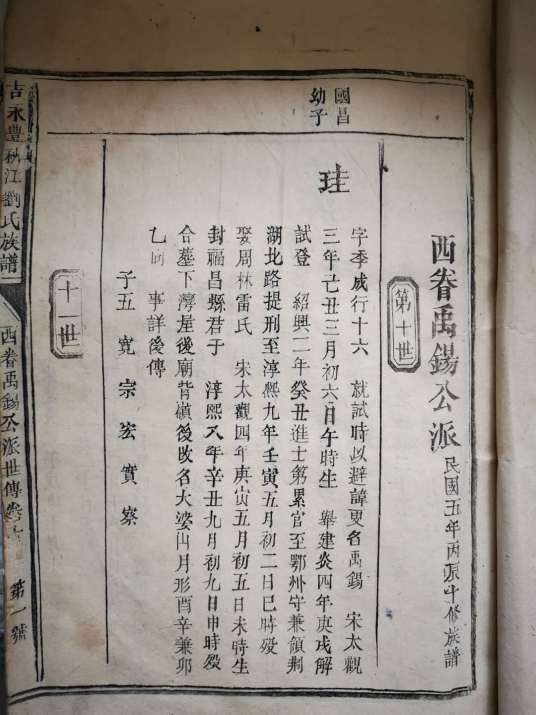 西眷禹錫公派 民國五年丙辰十修族譜
第十世
國昌
幼子
珪
字季成行十六 就試時以避諱更名禹錫 宋太觀
三年己丑三月初六日午時生 舉建炎四年庚戌解
試登 紹興二年癸丑進士第累官至鄂州守兼領荆
湖北路提刑至淳熙九年壬寅五月初二日巳時殁
娶周林雷氏 宋太觀四年庚寅五月初五日未時生
封福昌縣君于 淳熙八年辛丑九月初九日申時殁
合墓下灣屋後廟背嶺後改名大婆山月形酉辛兼卯
乙向 事詳後傳
子五 寬 宗 宏 實 察
十一世
吉永豐秋江劉氏族譜
西眷禹錫公派世傳卷
第一號